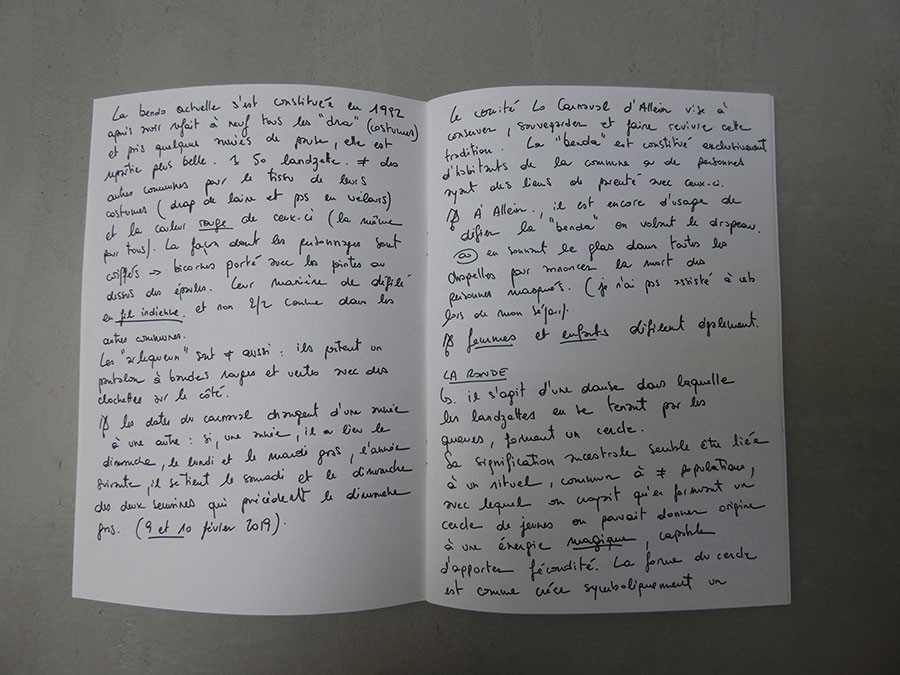 La benda actuelle s'est constituée en 1982
après avoir refait à neuf tous les "dra" (costumes)
et pris quelques années de pause, elle est
repartie plus belle. 50 landzette. ≠ des
autres communes par le tissu de leurs
costumes (drap de laine et pas en velours)
et la couleur rouge de ceux-ci (la même
pour tous). La façon dont les personnages sont
coiffés → bicornes porté avec les pointes au
dessus des épaules. Leur manière de défilé
en file indienne et non 2/2 comme dans les
autres communes.
Les "arlequeun" sont ≠ aussi : ils portent un
pantalon à bandes rouges et vertes avec des
clochettes sur le côté.
les dates du carnaval changent d'une année
à une autre : si, une année, il a lieu le
dimanche, le lundi et le mardi gras, l'année
suivante, il se tient le samedi et le dimanche
des deux semaines qui précèdent le dimanche
gras. (9 et 10 février 2019).
Le comité Lo Carnaval d'Allein vise à
conserver, sauvegarder et faire revivre cette
tradition. La "benda" est constitué exclusivement
d'habitants de la commune ou de personnes
ayant des liens de parenté avec ceux-ci.
À Allein, il est encore d'usage de
défier la "benda" en volant le drapeau.
ou en sonnant le glas dans toutes les
chapelles pour annoncer la mort des
personnes masqués. (je n'ai pas assisté à cela
lors de mon séjour).
femmes et enfants défilent également.
LA RONDE
il s'agit d'une danse dans laquelle
les landzettes en se tenant par les
queues, forment un cercle.
Sa signification ancestrale semble être liée
à un rituel, commun à ≠ populations,
avec lequel on croyait qu'en formant un
cercle de jeunes on pouvait donner origine
à une énergie magique, capable
d'apporter fécondité. La forme du cercle
est comme créer symboliquement un